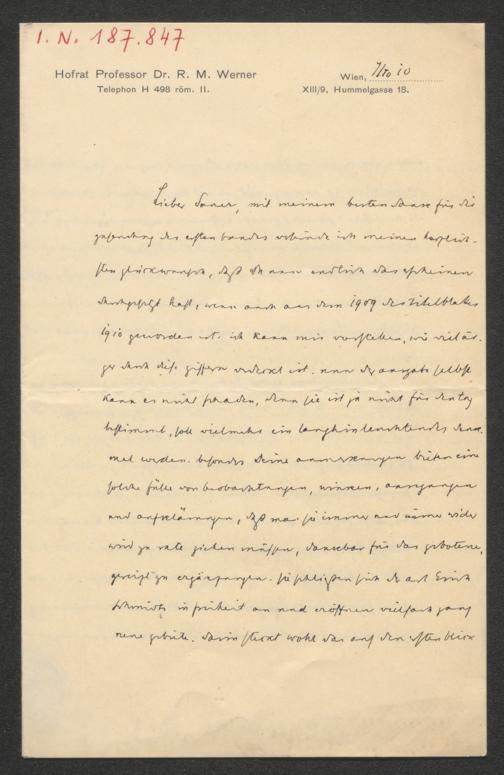 I. N. 187.847
Hofrat Professor Dr. R. M. Werner
Telephon H 498 röm. II.
Wien, 7/10 10
XIII/9, Hummelgasse 18.
Lieber Sauer, mit meinem besten Danke für die
zusendung des ersten bandes verbinde ich meinen herzlich-
sten glückwunsch, daß du nun endlich das erscheinen
durchgesetzt hast, wenn auch aus dem 1909 des titelblattes
1910 geworden ist. ich kann mir vorstellen, wie viel är-
ger durch diese ziffern verdeckt ist. nun der ausgabe selbst
kann es nicht schaden, denn sie ist ja nicht für den tag
bestimmt, soll vielmehr ein langhin leuchtendes denk-
mal werden. besonders Deine anmerkungen bieten eine
solche fülle von beobachtungen, winken, anregungen
und aufklärungen, daß man sie immer und immer wider
wird zu rate ziehen müssen, dankbar für das gebotene,
gereizt zu ergänzungen. sie schließen sich der art Erich
Schmidts in freiheit an und eröffnen vielfach ganz
neue gebiete. darin steckt wohl das auf den ersten blick